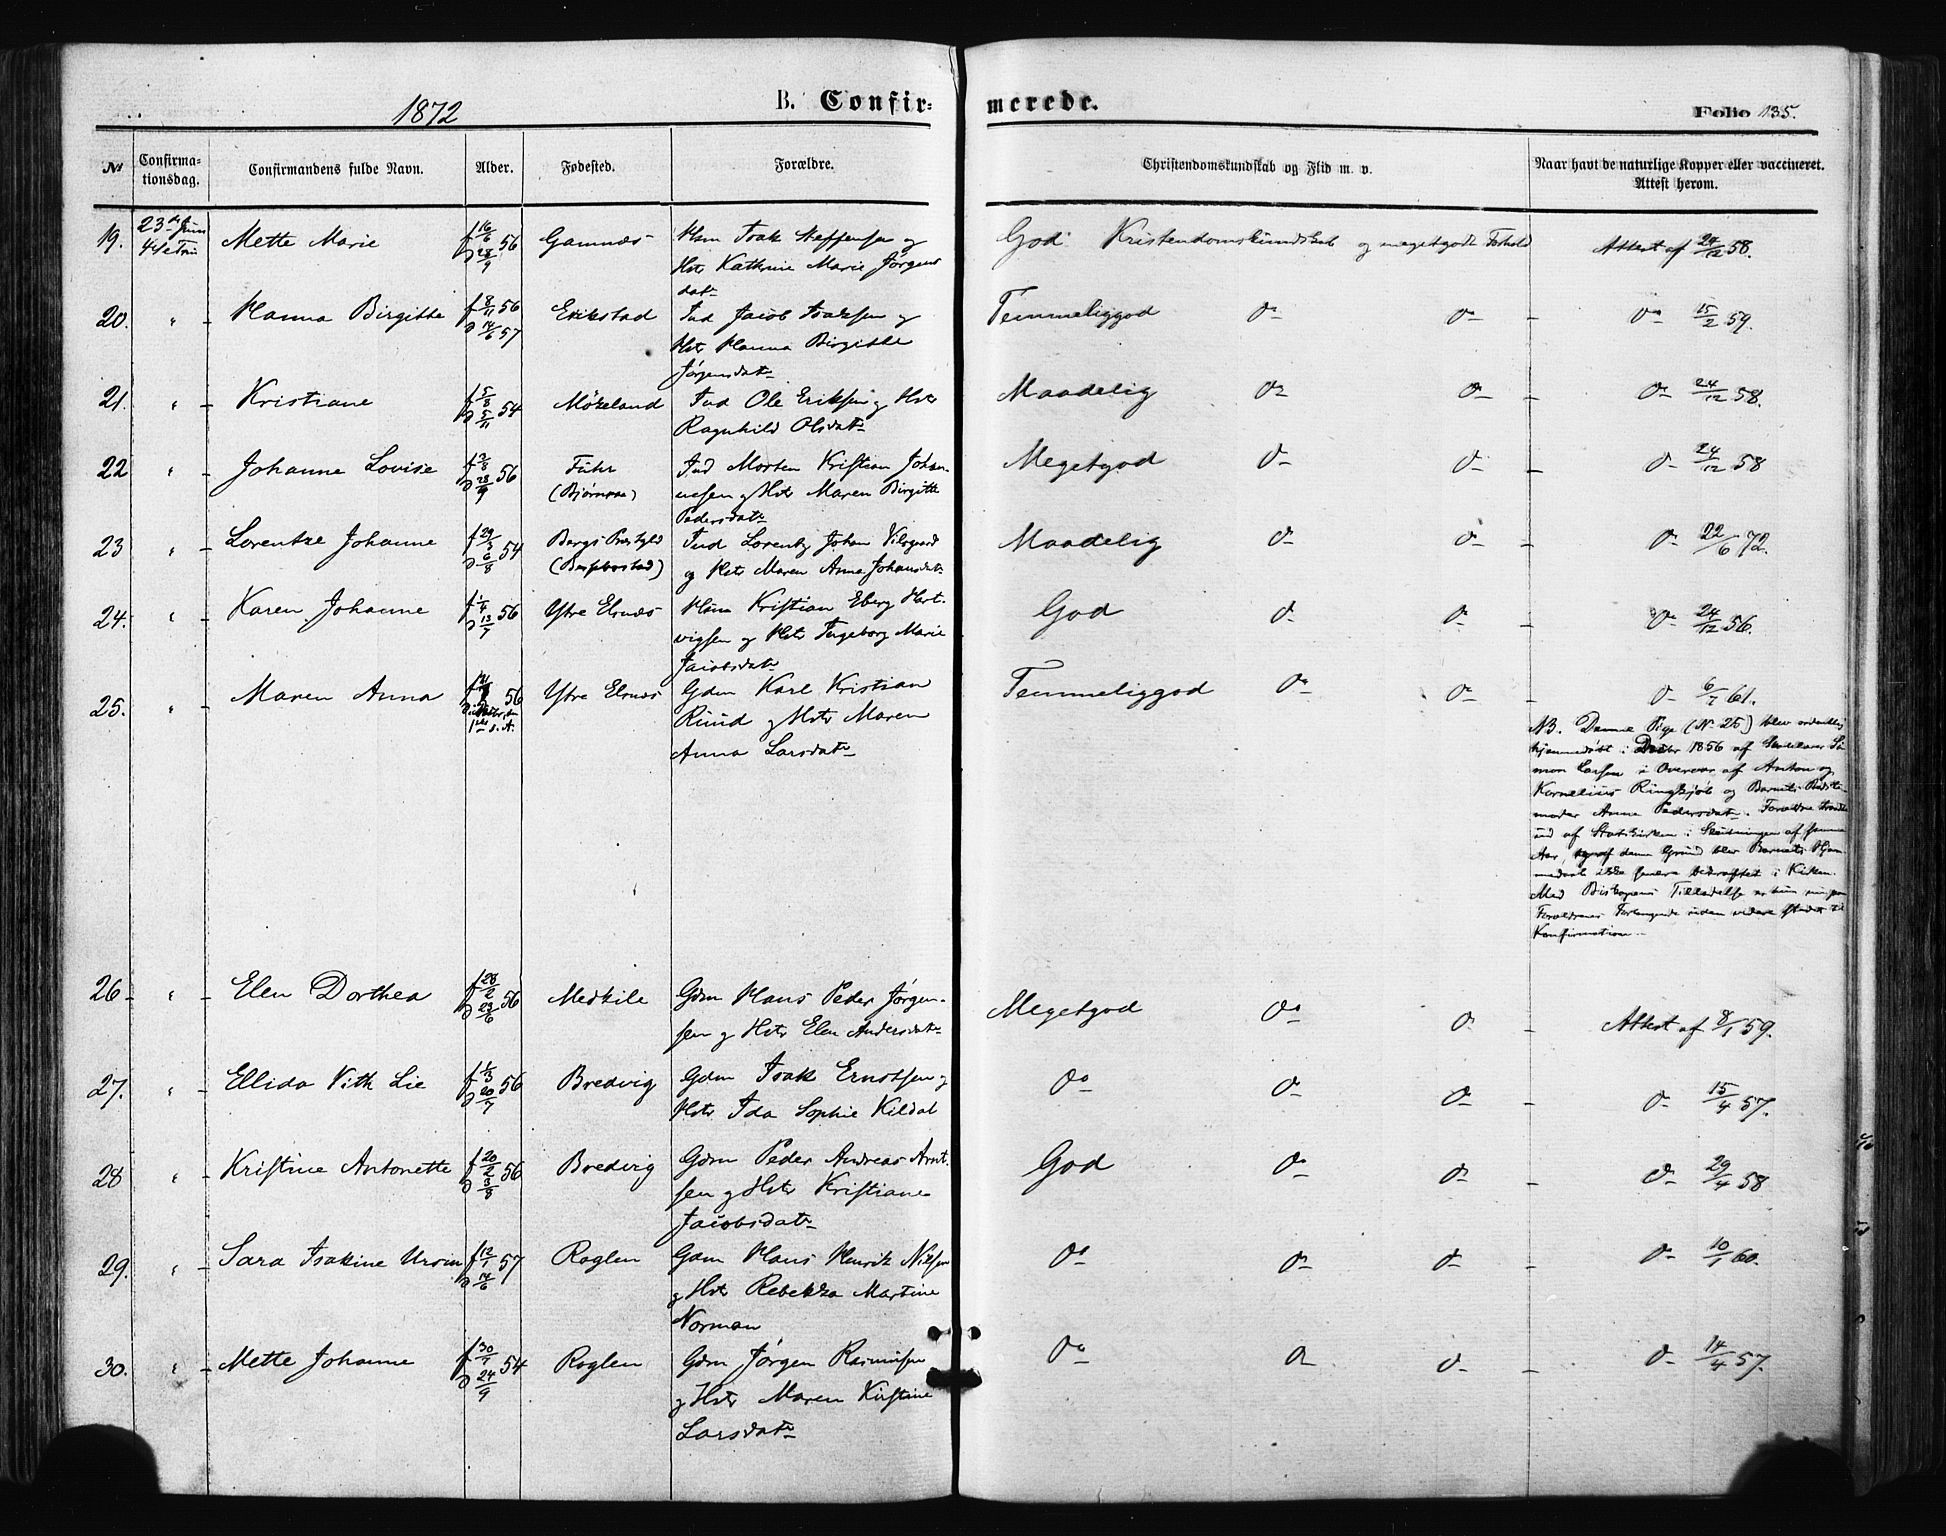 1872 B. Confir- merede. Folio 135.
№ Confirma- Confirmandens fulde Navn. Alder. Fødested. Forældre. Christendomskundskab og Flid m. v. Naar havt de naturlige Kopper eller vaccineret.
tionsdag. Attest herom.
19. 23de Juni Mette Marie f 16/6 56 Gamnæs Hsm Isak Steffensen og God Kristendomskundskab og megetgodt Forhold Attest af 24/12 58.
4de e Trin D 28/9 Hstr Kathrine Marie Jørgens
datr
20. " - Hanna Birgitte f 8/11 56 Erikstad Ind Jacob Isaksen og Temmeliggod Do Do - Do 15/2 59.
D 14/6 57 Hstr Hanna Birgitte
Jørgensdatr
21. " - Kristiane f 5/8 54 Møkeland Ind Ole Eriksen og Hstr Maadelig Do Do - Do 24/12 58.
D 5/11 Ragnhild Olsdatr
22 " - Johanne Lovise f 2/8 56 Fuhr Ind Morten Kristian Johan- Megetgod Do Do - Do 24/12 58
D 28/9 (Bjørnraa) nesen og Hstr Maren Birgitte
Pedersdatr
23 " - Lorentze Johanne f 29/3 54 Bergs Præstgld Ind Lorentz Johan Vilsgaard Maadelig Do Do - Do 22/6 72.
D 6/8 og Hstr Maren Anna Johansdatr
24. " - Karen Johanne f 1/4 56 Ytre Elnæs Hsm Kristian Eberg Hart- God Do Do - Do 24/12 56.
D 13/7 vigsen og Hstr Ingeborg Marie
Jacobsdatr
25. " - Maren Anna 56 Ytre Elnæs Gdm Karl Kristian Temmeliggod Do Do - Do 6/7 61.
Ruud og Hstr Maren
Anna Larsdatr
NB. Denne Pige (N. 25) blev ordentlig
hjemmedøbt i Decbr 1856 af Skolelærer Si-
mon Larsen i Overvær af Anton og
Kornelius Ringkjøb og Barnets Bedste-
moder Anna Pedersdatr. Forældre traadte
ud af Statskirken i Slutningen af samme
Aar, og af denne Grund blev Barnets Hjem-
medaab ikke senere bekræftet i Kirken.
Med Biskopens Tilladelse er hun nu paa
Forældrenes Forlangende uden videre stedet til
Konfirmation.
26 - " - Elen Dorthea f 28/2 56 Medkile Gdm Hans Peder Jørgen- Megetgod Do Do - Attest af 8/1 59.
D 29/6 sen og Hstr Elen Andersdatr
27. " - Ellida Vith Lie f 1/3 56 Bredvig Gdm Isak Ernstsen og Do Do Do - Do 15/4 57.
D 20/7 Hstr Ida Sophie Kildal
28 " - Kristine Antonette f 20/2 56 Bredvig Gdm Peder Andreas Arnt- God Do Do - Do 29/4 58
D 3/8 sen og Hstr Kristiane
Jacobsdatr
29. " - Sara Isakine Ursin f 12/1 57 Roglen Gdm Hans Henrik Nilsen Do Do Do - Do 10/1 60.
D 14/6 og Hstr Rebekka Martine
Norman
30. " - Mette Johanne f 30/7 54 Roglen Gdm Jørgen Rasmussen Do Do Do - Do 14/4 57.
D 24/9 og Hstr Maren Kirstine
Larsdatr